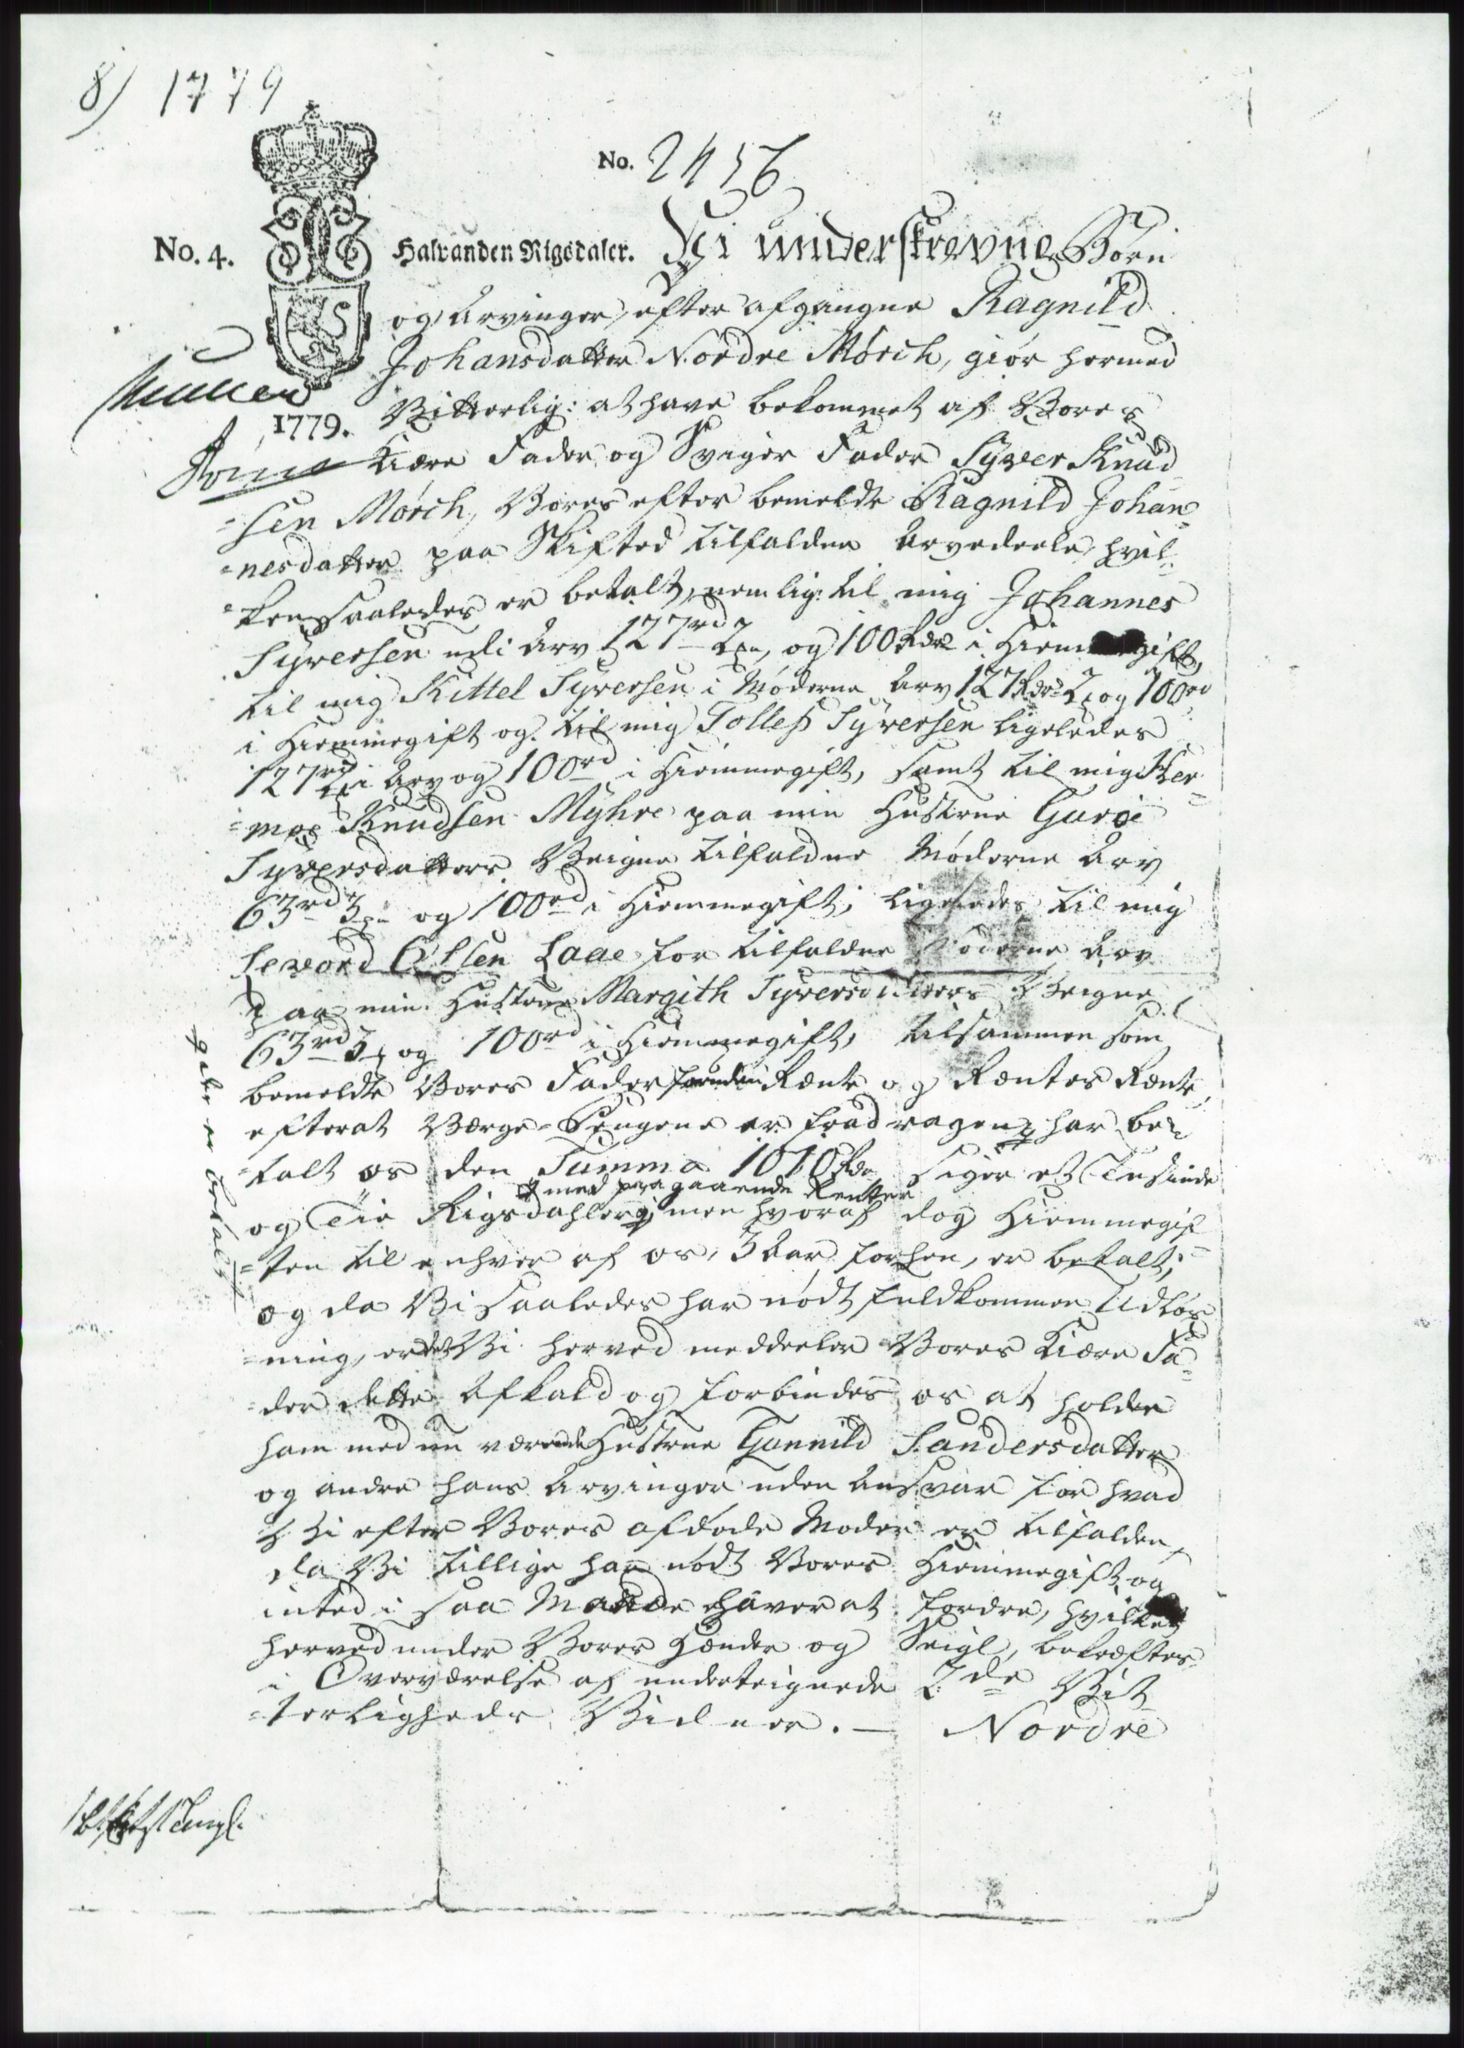 8) 1779
No. 2456
No. 4. Halvanden Rigsdaler. Vi underskrevne Børn
og Arvinger efter afgangne Ragnild
Johansdatter Nordre Mørch, giør hermed
1779. Vitterlig: at have bekommet af Vores
Kiære Fader og Sviger Fader Syver Knud
=sen Mørch, Vores efter bemeldte Ragnild Johan=
=nesdatter paa Skiftet tilfaldne Arvedeele, hvil=
=ken saaledes er betalt, nemlig: til mig Johannes
Syversen udi Arv 127rd 2 og 100 Rdr i Hiemmegift,
til mig Kittel Syversen i Møderne Arv 127 Rdr 2 og 100rd
i Hiemmegift og til mig Tollef Syversen ligeledes
127rd i Arv og 100rd i Hiemmegift, samt til mig Her=
=moe Knudsen Myhre paa min Hustrue Guroe
Syversdatters Veigne tilfaldne Møderne Arv
63rd 3 og 100rd i Hiemmegift; ligeledes til mig
Sevord Olsen Laae for tilfaldne Møderne Arv
paa min Hustrue Margith Syversdatters Veigne
63rd 3 og 100rd i Hiemmegift, tilsammen som
bemeldte Vores Fader foruden Rente og Rentes Rente
efterat Værge=Pengene er fradragen har be=
=talt os den Summa 1010 Rdr siger et Tusinde
med paagaaende Rentter
og Tie Rigsdahler, men hvoraf dog Hiemmegif
=ten til enhver af os, 3 Aar forhen, er betalt;
og da Vi saaledes har nødt fuldkommen Udløs
=ning, er det Vi herved meddeeler Vores Kiære Fa=
=der dette Afkald og forbinder os at holde
ham med nu værende Hustrue Gunnild Sandersdatter
og andre hans Arvinger uden Ansvar for hvad
Vi efter Vores afdøde Moder er tilfalden,
da Vi tillige har nødt Vores Hiemmegift og
inted i saa Maade haver at fordre, hvilket
herved under Vores Hænder og Seigl, bekræftes
i Overværelse af undertegnede 2de Vit
=terligheds Vidner. — Nordre
er betalt